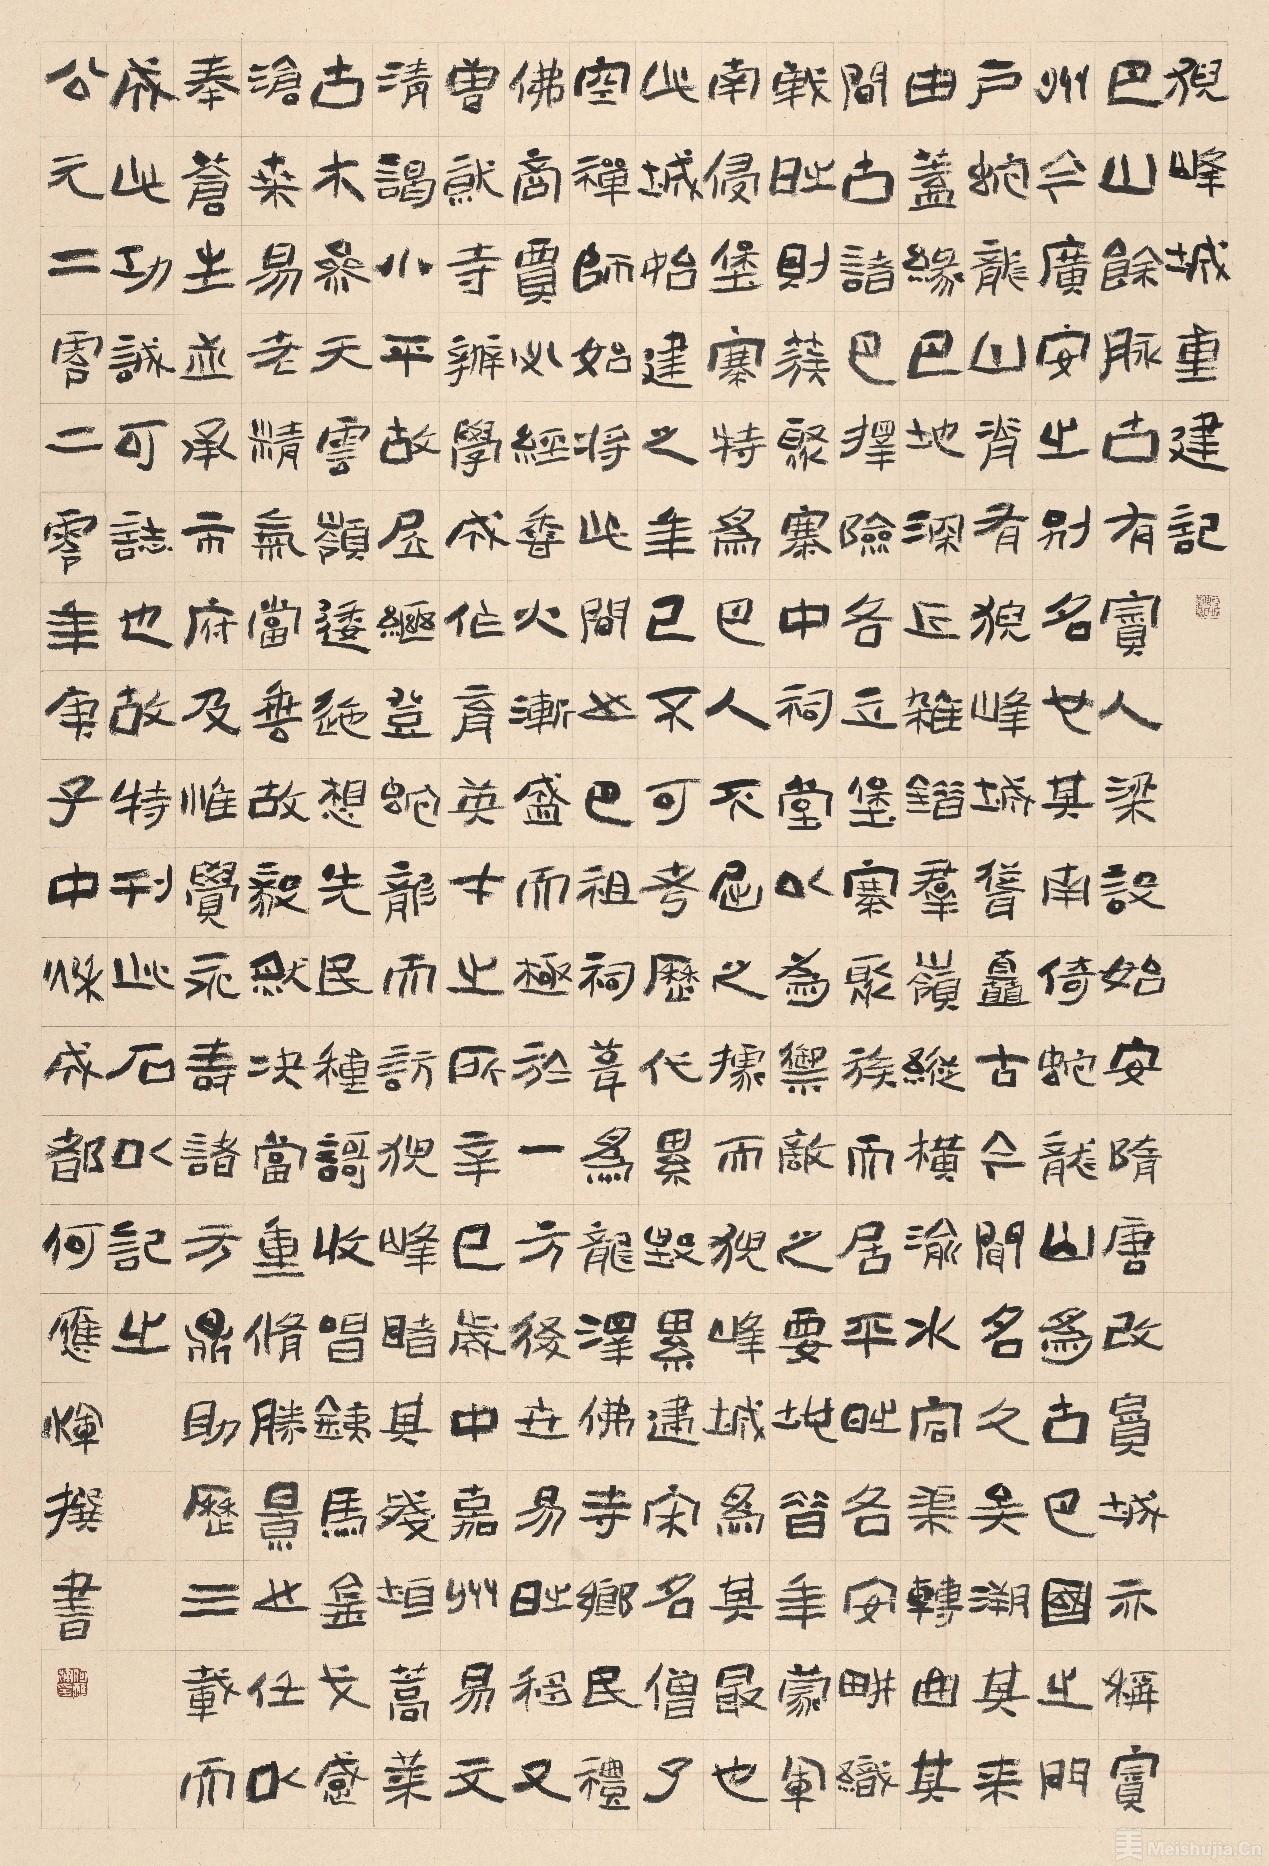 猊峰城重建記
巴山餘脉古有賨人梁設始安隋唐改賨城亦稱賨
州今廣安之别名也其南倚蛇龍山為古巴國之門
户蛇龍山脊有猊峰城聳矗古今間名久矣溯其来
由蓋緣巴地深丘雜錯羣嶺縱橫渝水宕渠轉曲其
間古諸巴擇險各立堡寨聚族而居平時各安畊織
戰時則蔟聚寨中祠堂以為禦敵之要地昔年蒙軍
南侵堡寨特為巴人不屈之據而猊峰城為其最也
此城始建之年已不可考歷代累毀累建宋名僧了
空禪師始将此間也巴祖祠葺為龍澤佛寺鄉民禮
佛商賈必經香火漸盛而極於一方後世易時移又
曾献寺辦學成作育英才之所辛巳歲中嘉州易文
清謁小平故居繼登蛇龍而訪猊峰睹其殘垣蒿萊
古木參天雲嶺逶迤想先民種謌收唱鐵馬金戈感
滄桑易老精氣當垂故毅然决當重脩勝景也任以
奉蒼生並承市府及惟覺永壽諸方鼎助歷三載而
成此功誠可誌也故特刊此石以記之
公元二零二零年庚子中秋成都何應輝撰書
美 Meishujia.Cn